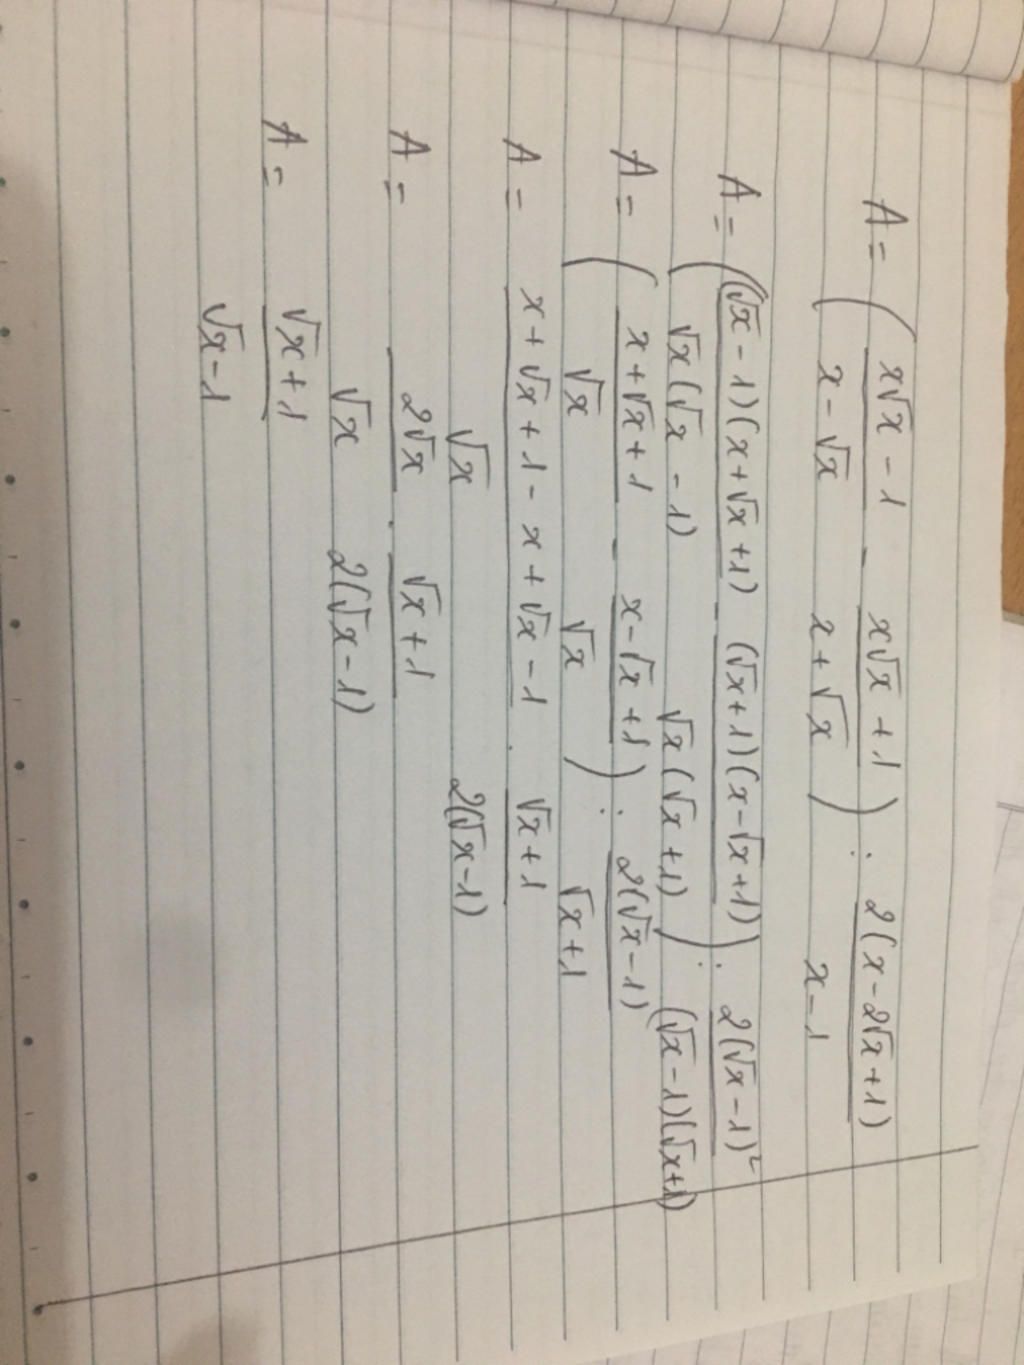 A = ( x√x - 1 / x - √x - x√x + 1 / x + √x ) : 2(x - 2√x + 1) / x - 1
A = ( (√x - 1)(x + √x + 1) / √x(√x - 1) - (√x + 1)(x - √x + 1) / √x(√x + 1) ) : 2(√x - 1)² / (√x - 1)(√x + 1)
A = ( x + √x + 1 / √x - x - √x + 1 / √x ) : 2(√x - 1) / √x + 1
A = x + √x + 1 - x + √x - 1 / √x . √x + 1 / 2(√x - 1)
A = 2√x / √x . √x + 1 / 2(√x - 1)
A = √x + 1 / √x - 1